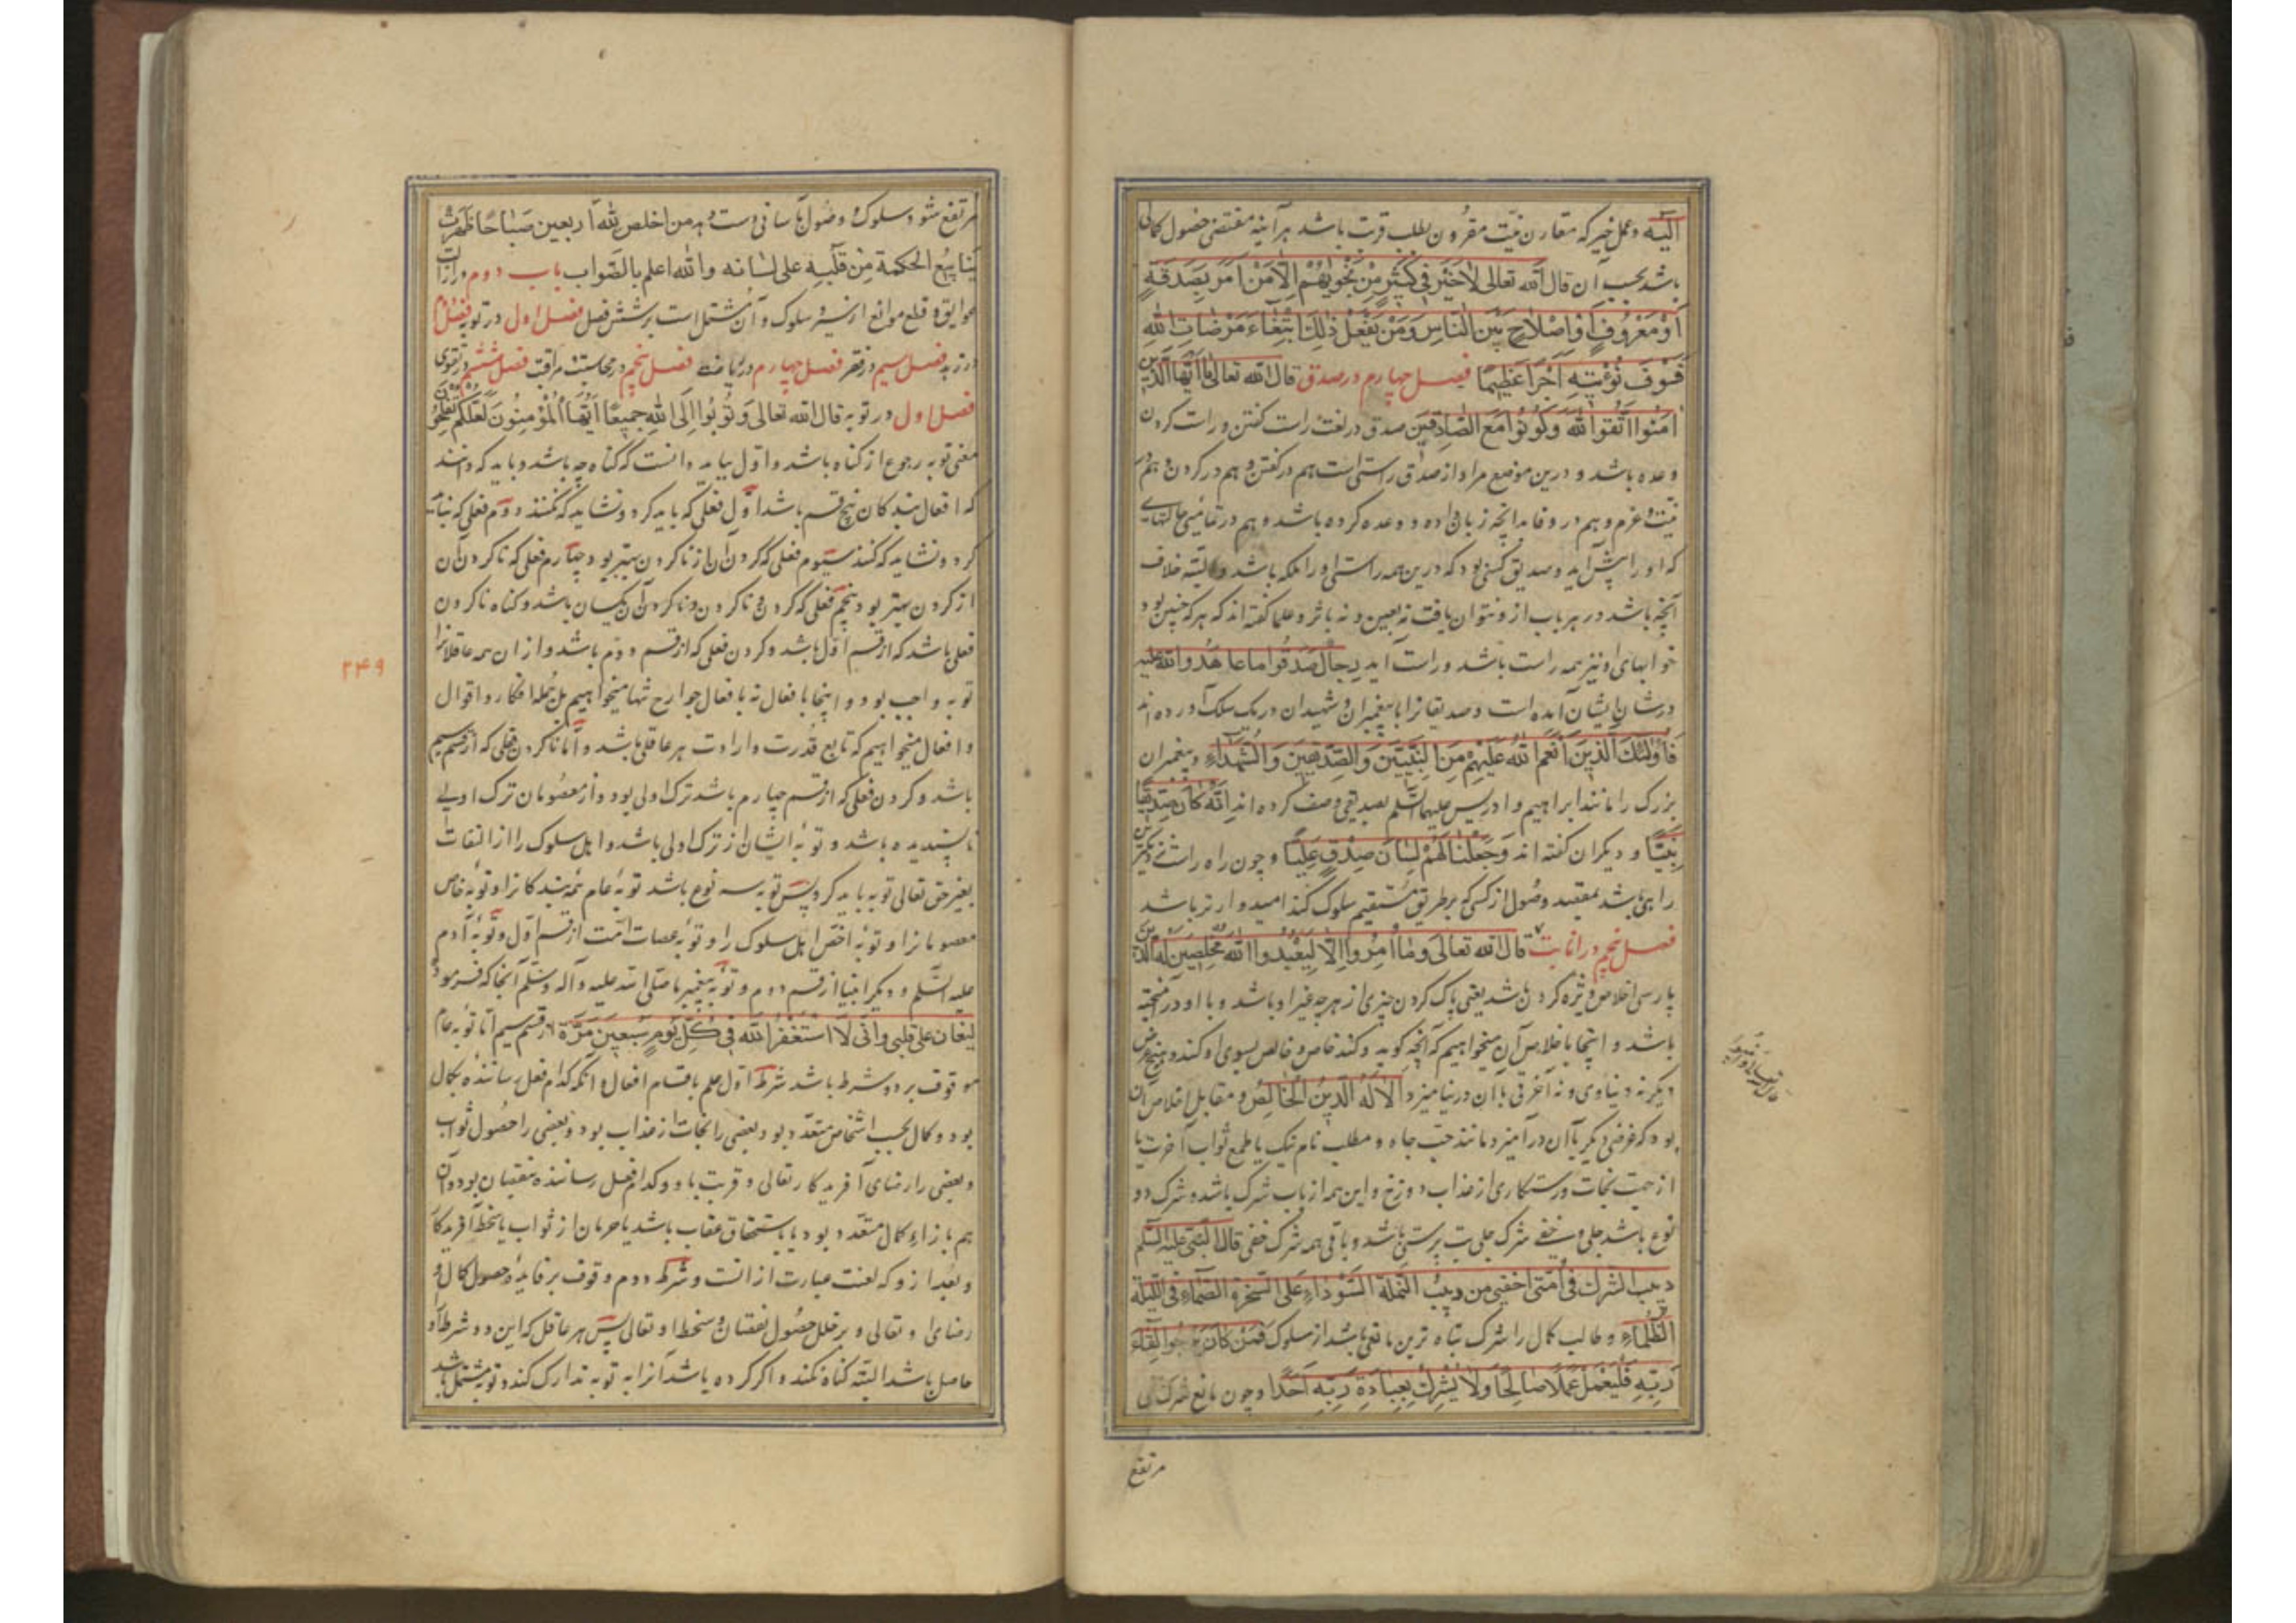 الیه و عمل خیر که مقارن نیت مقرون بطلب قربت باشد هرآینه مقتضی حصول کمالی
باشد بحسب آن قال الله تعالی لَا خَیْرَ فِی کَثِیرٍ مِنْ نَجْوٰیهُمْ اِلَّا مَنْ اَمَرَ بِصَدَقَةٍ
اَوْ مَعْرُوفٍ اَوْ اِصْلَاحٍ بَیْنَ النَّاسِ وَمَنْ یَفْعَلْ ذٰلِکَ ابْتِغَاءَ مَرْضَاتِ اللهِ
فَسَوْفَ نُؤْتِیهِ اَجْرًا عَظِیمًا فصل چهارم در صدق قال الله تعالی یا اَیُّهَا الَّذِینَ
اٰمَنُوا اتَّقُوا اللهَ وَکُونُوا مَعَ الصَّادِقِینَ صدق در لغت راست گفتن و راست کردن
وعده باشد و درین موضع مراد از صدق راستی است هم در گفتن و هم در کردن و هم در
نیت و عزم و هم در وفا بدانچه زبان داده و وعده کرده باشد و هم در تمامی حالتهای
که او را پیش آید و صدیق کسی بود که درین همه راستی او را ملکه باشد و البته خلاف
آنچه باشد در هر باب ازو نتوان یافت نه بعین و نه باثر و علما گفته‌اند که هر که چنین بود
خوابهای او نیز همه راست باشد و راست آید رِجَالٌ صَدَقُوا مَا عَاهَدُوا اللهَ عَلَیْهِ
در شان ایشان آمده است و صدیقانرا با پیغمبران و شهیدان در یک سلک آورده‌اند
فَاُولٰئِکَ الَّذِینَ اَنْعَمَ اللهُ عَلَیْهِمْ مِنَ النَّبِیِّینَ وَالصِّدِّیقِینَ وَالشُّهَدَاءِ و پیغمبران
بزرک را مانند ابراهیم و ادریس علیهما السلم بصدیقی وصف کرده‌اند اِنَّهُ کَانَ صِدِّیقًا
نَبِیًّا و دیگران گفته‌اند وَجَعَلْنَا لَهُمْ لِسَانَ صِدْقٍ عَلِیًّا و چون راه راست نزدیکترین
راهی باشد بمقصد وصول از کسی که بر طریق مستقیم سلوک کند امیدوارتر باشد
فصل پنجم در انابت قال الله تعالی وَمَا اُمِرُوا اِلَّا لِیَعْبُدُوا اللهَ مُخْلِصِینَ لَهُ الدِّینَ
پارسی اخلاص ویژه کردن باشد یعنی پاک کردن چیزی از هر چه غیر او باشد و با او در آمیخته
باشد و اینجا باخلاص آن میخواهیم که آنچه گوید و کند خاص و خالص بسوی او کند و هیچ غرض
دیگر نه دنیاوی و نه آخرتی با آن در نیامیزد اَلَا لِلّٰهِ الدِّینُ الْخَالِصُ و مقابل اخلاص آن
بود که غرضی دیگر با آن در آمیزد مانند حب جاه و مطلب نام نیک یا طمع ثواب آخرت یا
از جهت نجات و رستکاری از عذاب دوزخ و این همه از باب شرک باشد و شرک دو
نوع باشد جلی و خفی شرک جلی بت پرستی باشد و باقی همه شرک خفی قال النبی علیه السلم
دبیب الشرک فی امتی اخفی من دبیب النملة السوداء علی الصخرة الصماء فی اللیلة
الظلماء و طالب کمال را شرک تباه ترین مانعی باشد از سلوک فَمَنْ کَانَ یَرْجُوا لِقَاءَ
رَبِّهِ فَلْیَعْمَلْ عَمَلًا صَالِحًا وَلَا یُشْرِکْ بِعِبَادَةِ رَبِّهِ اَحَدًا و چون مانع شرک خفی
مرتفع
مرتفع شود سلوک و وصول باسانی دست دهد من اخلص لله اربعین صباحا ظهرت
ینابیع الحکمة من قلبه علی لسانه والله اعلم بالصواب باب دوم در ازالت
عوایق و قلع موانع از سیر و سلوک و آن مشتمل است بر شش فصل فصل اول در توبه فصل دوم
در زهد فصل سیم در فقر فصل چهارم در ریاضت فصل پنجم در محاسبت و مراقبت فصل ششم در تقوی
فصل اول در توبه قال الله تعالی وَتُوبُوا اِلَی اللهِ جَمِیعًا اَیُّهَا الْمُؤْمِنُونَ لَعَلَّکُمْ تُفْلِحُونَ
معنی توبه رجوع از گناه باشد و اول بباید دانست که گناه چه باشد و باید که دانند
که افعال بندکان پنج قسم باشد اول فعلی که باید کرد و نشاید که نکنند دوم فعلی که نباید
کرد و نشاید که کنند سیوم فعلی که کردن آن از ناکردن بهتر بود چهارم فعلی که ناکردن آن
از کردن بهتر بود پنجم فعلی که کردن و ناکردن آن یکسان باشد و گناه ناکردن
فعلی باشد که از قسم اول باشد و کردن فعلی که از قسم دوم باشد و از ان همه عاقلانرا
توبه واجب بود و اینجا بافعال نه بافعال جوارح تنها میخواهیم بل جمله افکار و اقوال
و افعال میخواهیم که تابع قدرت و ارادت هر عاقلی باشد و اما ناکردن فعلی که از قسم سیم
باشد و کردن فعلی که از قسم چهارم باشد ترک اولی بود و از معصومان ترک اولی
ناپسندیده باشد و توبه ایشان از ترک اولی باشد و اهل سلوک را از التفات
بغیر حق تعالی توبه باید کرد پس توبه سه نوع باشد توبه عام همه بندکانرا و توبه خاص
معصومانرا و توبه اخص اهل سلوک را و توبه عصات امت از قسم اول و توبه آدم
علیه السلم و دیگر انبیا از قسم دوم و توبه پیغمبر ما صلی الله علیه و آله و سلم آنجا که فرمود
لیغان علی قلبی و انی لَاَسْتَغْفِرُ اللهَ فِی کُلِّ یَوْمٍ سَبْعِینَ مَرَّة از قسم سیم اما توبه عام
موقوف بر دو شرط باشد شرط اول علم باقسام افعال و انکه کدام فعل رساننده بکمال
بود و کمال بحسب اشخاص متعدد بود بعضی را نجات از عذاب بود و بعضی را حصول ثواب
و بعضی را رضای آفریدکار تعالی و قربت باو و کدام فعل رساننده بنقصان بود و آن
هم بازاء کمال متعدد بود یا باستحقاق عقاب باشد یا حرمان از ثواب یا سخط آفریدکار
و بعد ازو که لعنت عبارت از انست و شرط دوم وقوف بر فایده حصول کمال و
رضای او تعالی و بر خلل حصول نقصان و سخط او تعالی پس هر عاقل که این دو شرط او را
حاصل باشد البته گناه نکند و اگر کرده باشد آنرا به توبه تدارک کند و توبه مشتمل باشد
۲۴۹